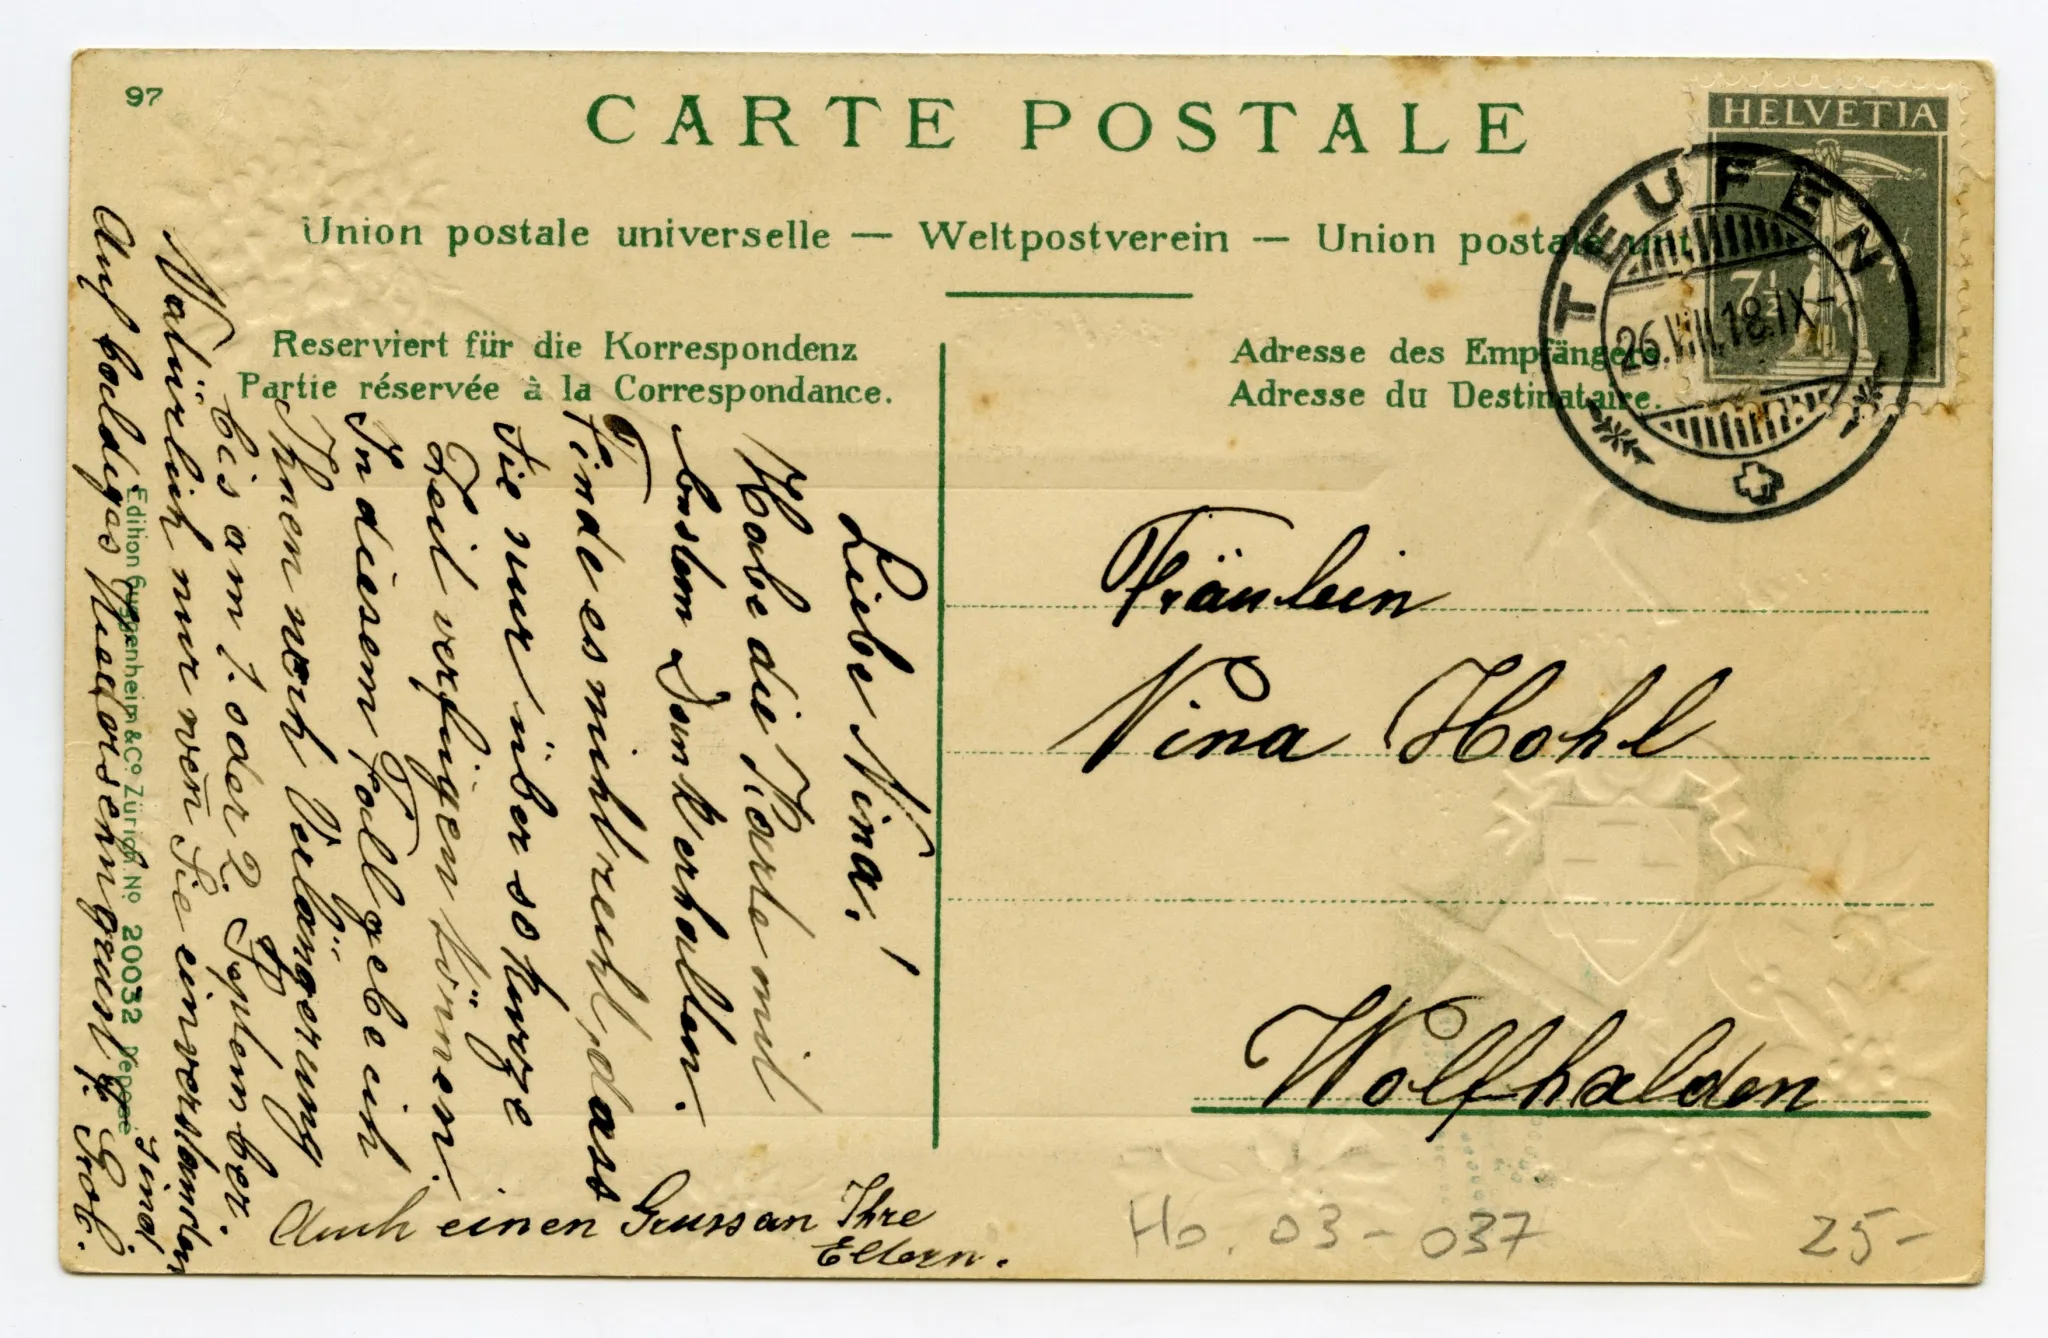 97
CARTE POSTALE
Union postale universelle — Weltpostverein — Union postale
Reserviert für die Korrespondenz
Partie réservée à la Correspondance.
Adresse des Empfängers.
Adresse du Destinataire.
HELVETIA
7½
TEUFEN
26.VIII.18.IX-
Liebe Nina!
Habe die Karte mit
bestem Dank erhalten.
Finde es nicht recht, dass
Sie nur über so kurze
Zeit verfügen können.
In diesem Fall gebe ich
Ihnen noch Verlängerung
bis am 1. oder 2. September.
Natürlich nur wen̄ Sie einverstanden
sind
Auf baldiges Wiedersehn grüsst J. Grob.
Auch einen Gruss an Ihre
Eltern.
Edition Guggenheim & Co. Zürich No. 20032 Déposé
Fräulein
Nina Hohl
Wolfhalden
Ho. 03-037
25-